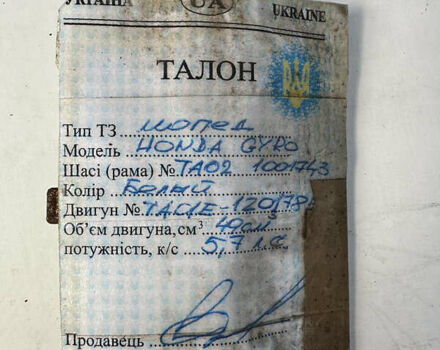 УКРАЇНА UA UKRAINE
ТАЛОН
Тип ТЗ мопед
Модель HONDA GYRO
Шасі (рама) № TA02 1001743
Колір Белый
Двигун №
Об'єм двигуна,см³ 49см³
потужність, к/с 5,7 л.с.
Продавець